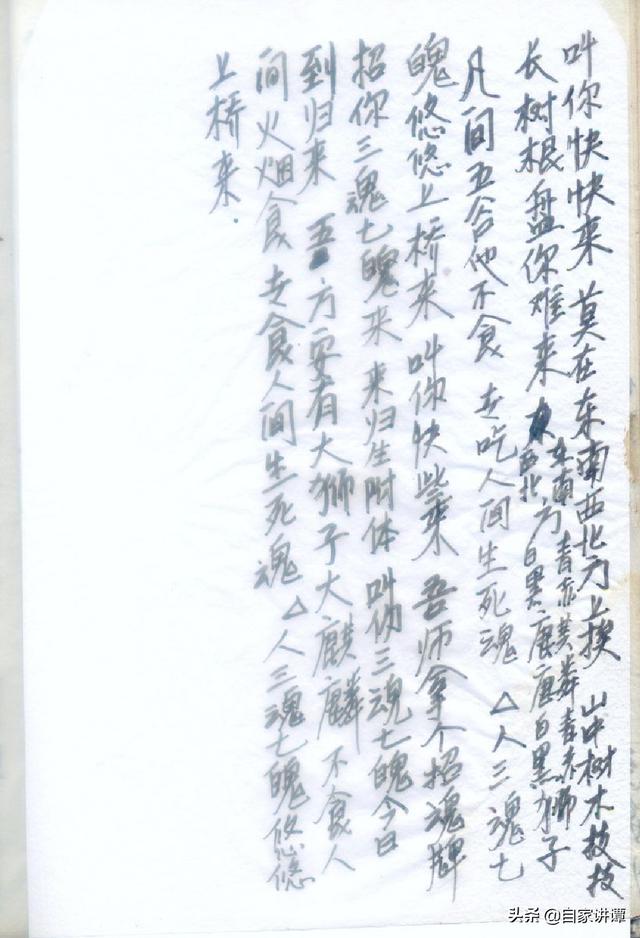 叫你快快来 莫在东南西北方上挨 山中树木技技
长树根盘你难来 东南 青赤黄麟青赤狮
西北方白黑麒唐白黑狮子
凡间五谷他不食 专吃人间生死魂 △人三魂七
魄悠悠上桥来 叫你快些来 吾师拿个招魂牌
招你三魂七魄来 来归生附体 叫你三魂七魄今日
到归来 吾方要有大狮子大麒麟 不食人
间火烟食 专食人间生死魂 △人三魂七魄悠悠
上桥来.
头条 @自家讲谭